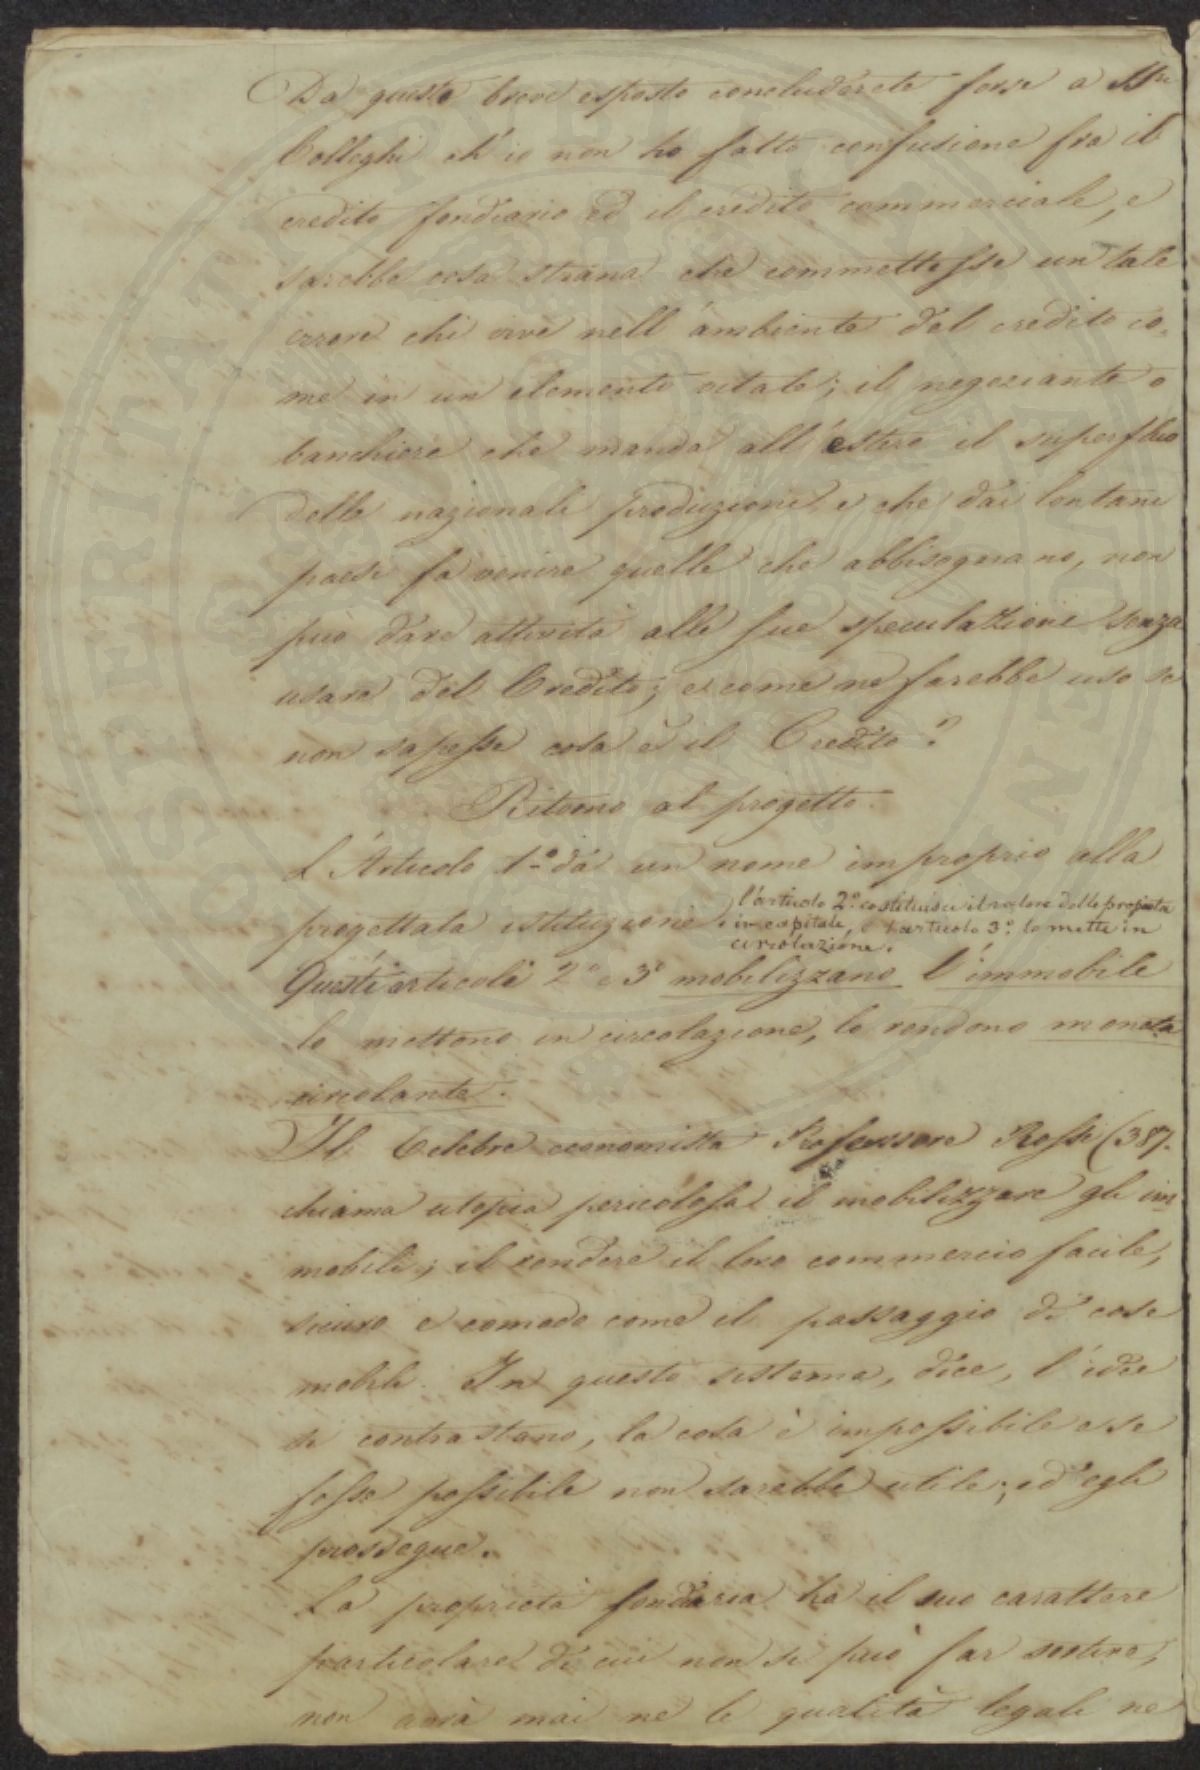 Da questo breve esposto concluderete forse o Sri
Colleghi ch'io non ho fatto confusione fra il
credito fondiario ed il credito commerciale, e
sarebbe cosa strana che commettesse un tale
errore chi vive nell'ambiente del credito co-
me in un elemento vitale; il negoziante o
banchiere che manda all'estero il superfluo
delle nazionali produzioni e che dai lontani
paesi fa venire quelle che abbisognano, non
può dare attività alle sue speculazioni senza
usare del Credito; e come ne farebbe uso se
non sapesse cosa è il Credito?
Ritorno al progetto.
L'Articolo 1º dà un nome improprio alla
progettata istituzione. l'articolo 2º costituisce il valore della proprietà
in capitale, e l'articolo 3º lo mette in
circolazione.
Questi articoli 2º e 3º mobilizzano l'immobile
lo mettono in circolazione, lo rendono moneta
circolante.
Il Celebre economista Professore Rossi (387.
chiama utopia pericolosa il mobilizzare gli im
mobili; il rendere il loro commercio facile,
sicuro e comodo come il passaggio di cose
mobili. In questo sistema, dice, l'idee
si contrastano, la cosa è impossibile e se
fosse possibile non sarebbe utile; ed egli
prossegue.
La proprietà fondiaria ha il suo carattere
particolare di cui non si può far sortire,
non avrà mai ne le qualità legali ne
PROSPERITATI PUBLICAE